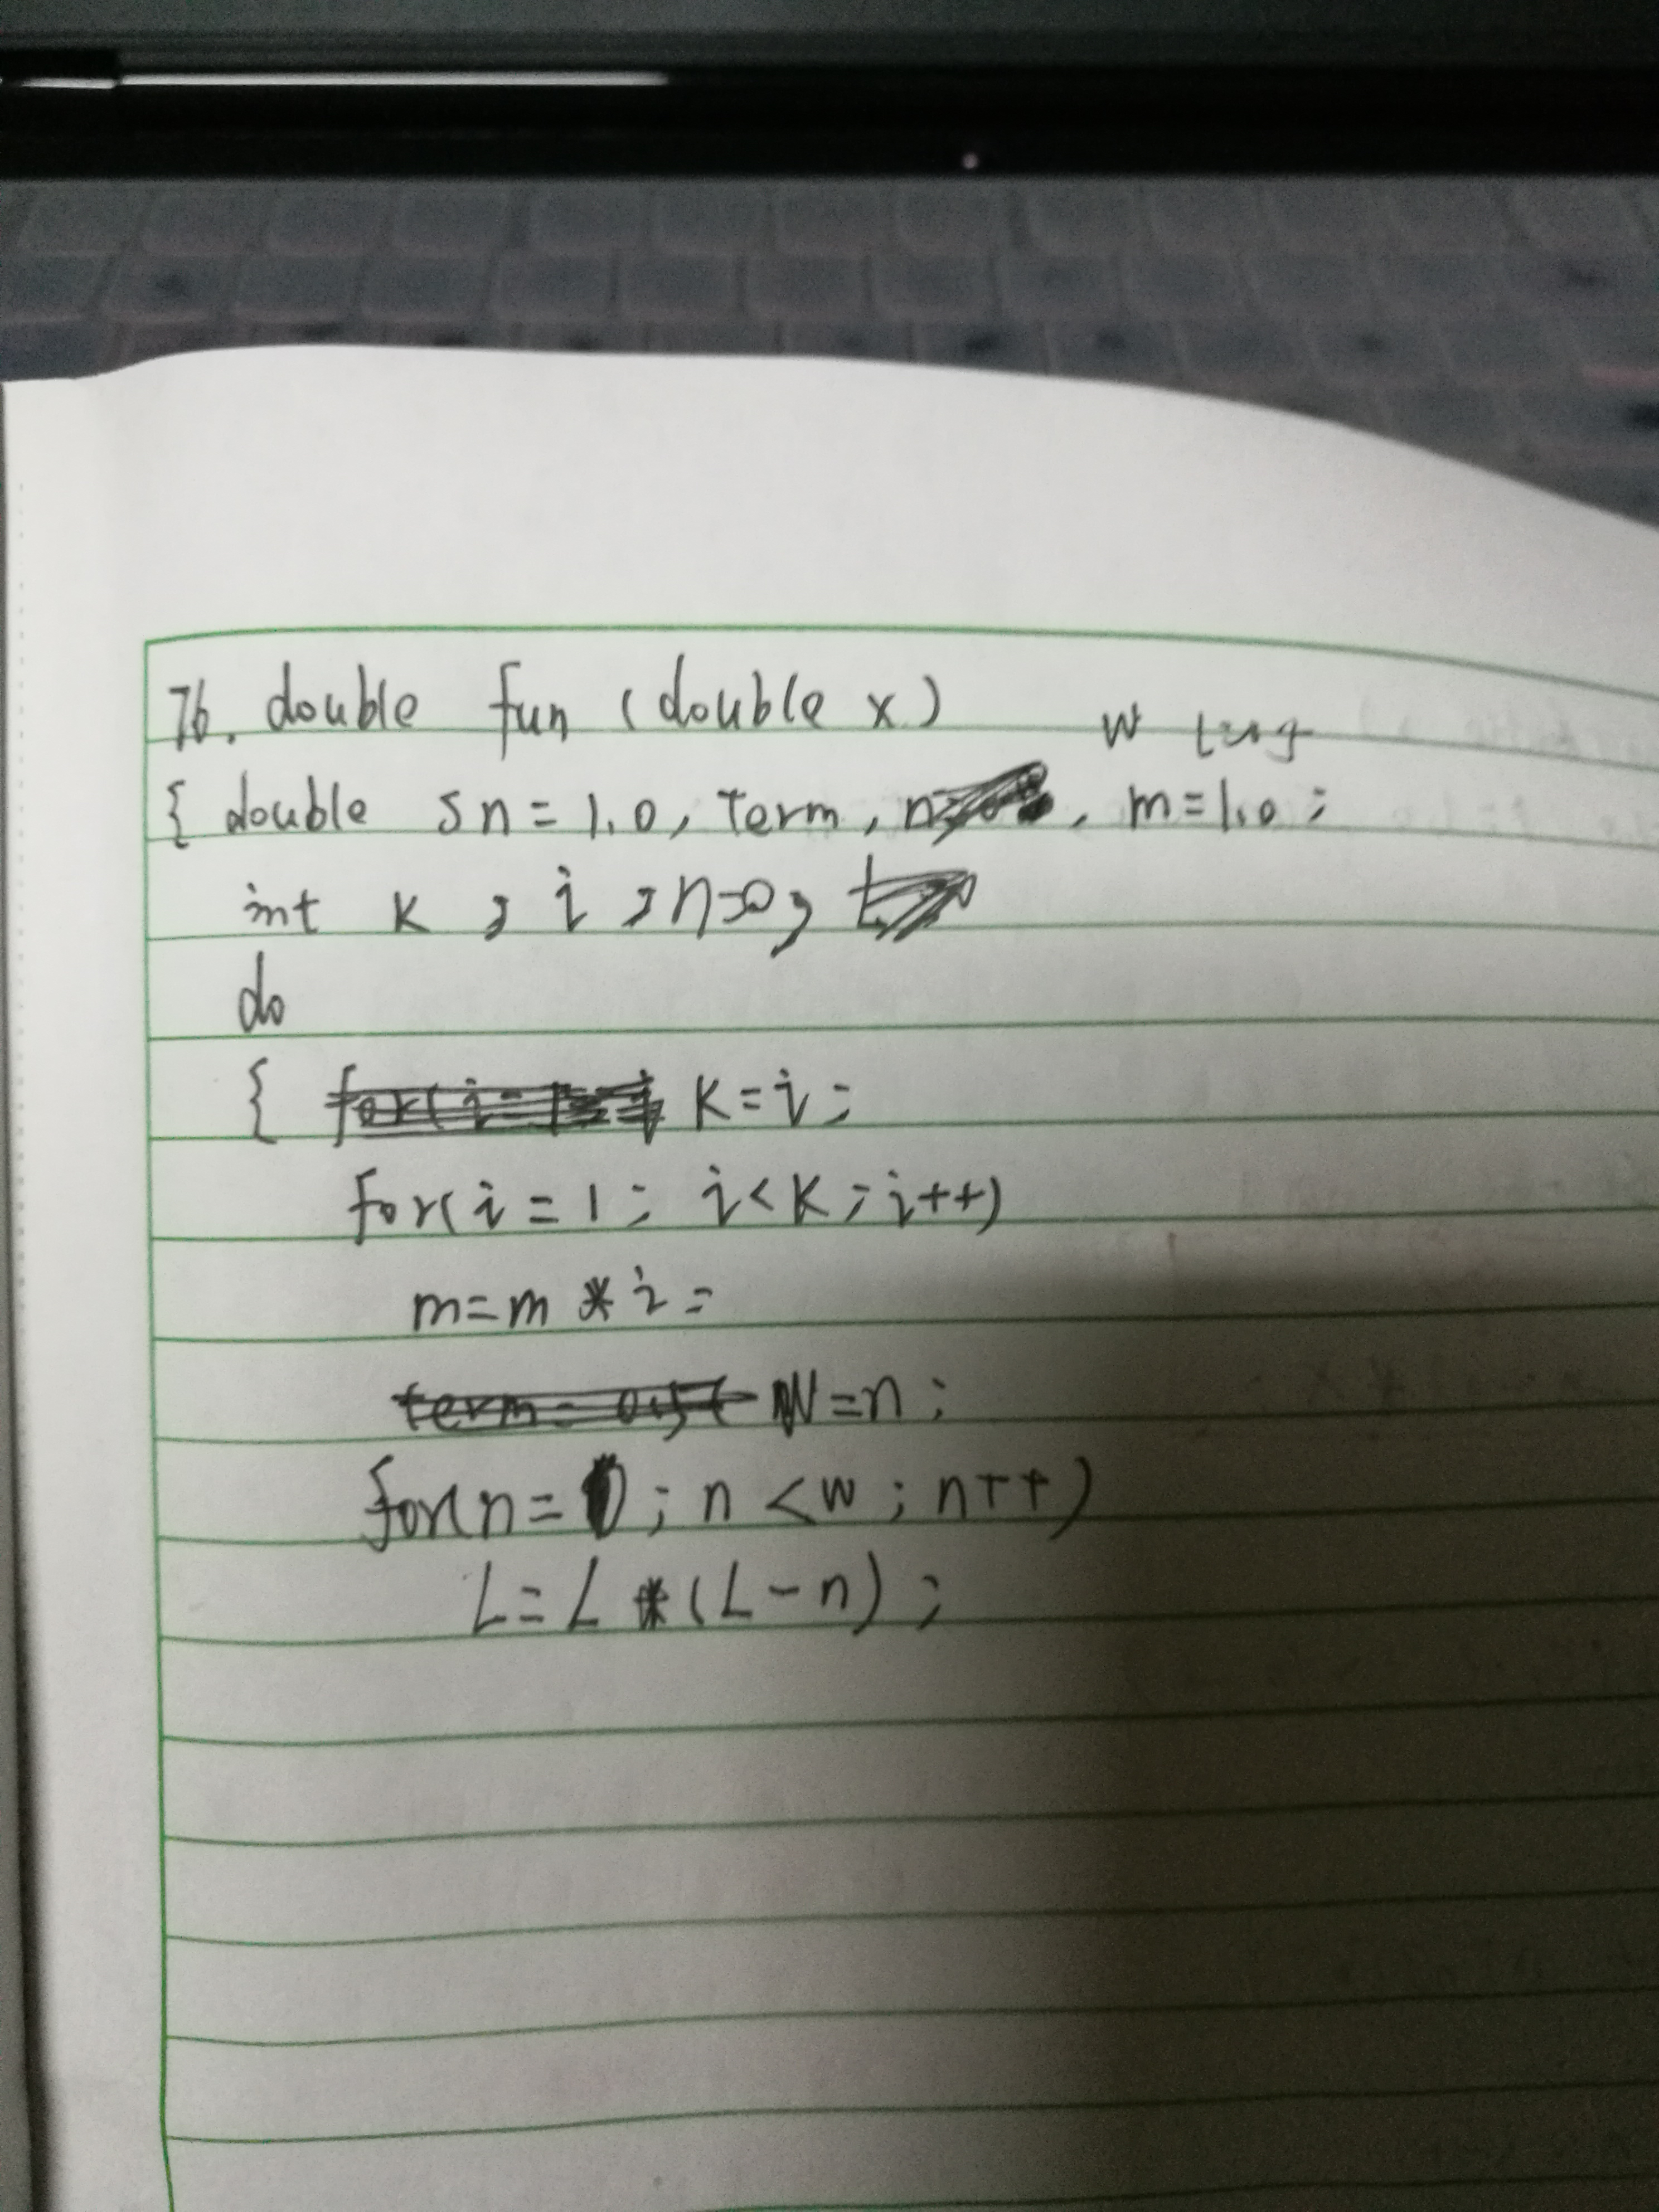 76. double fun (double x)
W
{ double sn = 1.0, term, n , m = 1.0 ;
int k , i , n=0 ,
do
{ k = i ;
for( i = 1 ; i < k ; i++)
m = m * i ;
W = n ;
for(n = 0 ; n < w ; n++)
L = L * (L - n) ;